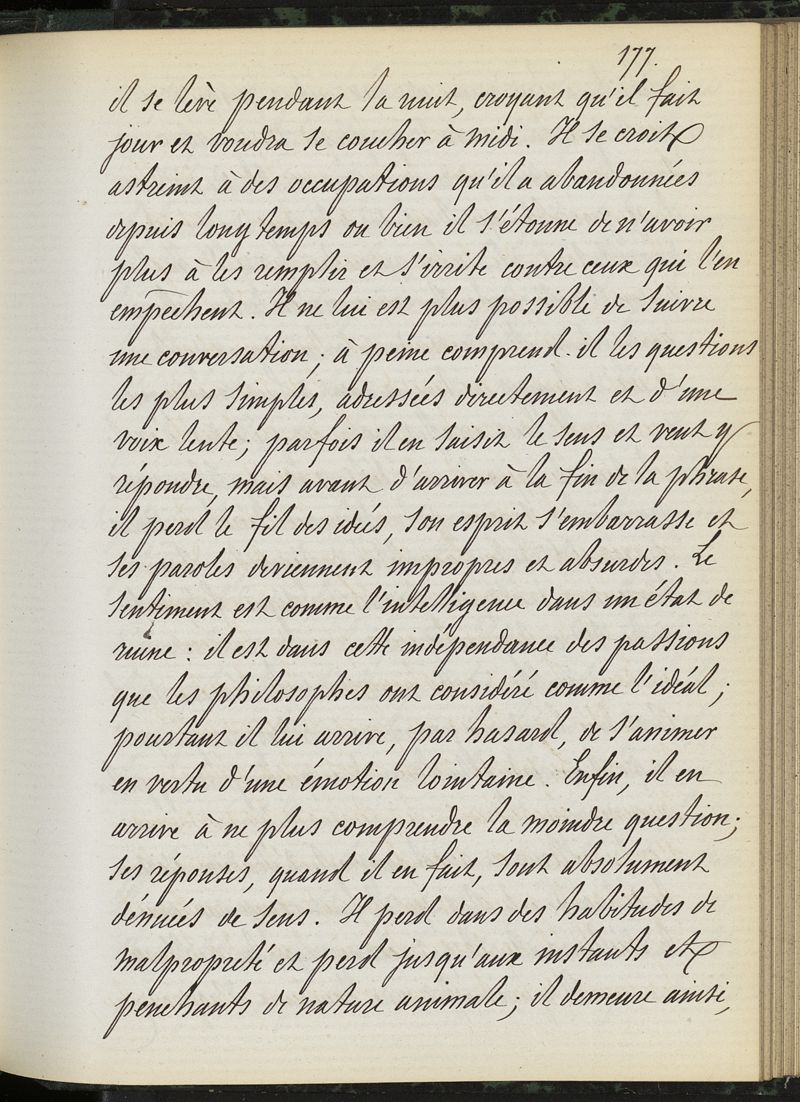 177.
il se lève pendant la nuit, croyant qu'il fait
jour et voudra se coucher à midi. Il se croit
astreint à des occupations qu'il a abandonnées
depuis longtemps ou bien il s'étonne de n'avoir
plus à les remplir et s'irrite contre ceux qui l'en
empêchent. Il ne lui est plus possible de suivre
une conversation; à peine comprend-il les questions
les plus simples, adressées directement et d'une
voix lente; parfois il en saisit le sens et veut y
répondre, mais avant d'arriver à la fin de la phrase,
il perd le fil des idées, son esprit s'embarrasse et
ses paroles deviennent impropres et absurdes. Le
sentiment est comme l'intelligence dans un état de
ruine: il est dans cette indépendance des passions
que les philosophes ont considéré comme l'idéal;
pourtant il lui arrive, par hasard, de s'animer
en vertu d'une émotion lointaine. Enfin, il en
arrive à ne plus comprendre la moindre question;
ses réponses, quand il en fait, sont absolument
dénuées de sens. Il perd dans des habitudes de
malpropreté et perd jusqu'aux instants et
penchants de nature animale; il demeure ainsi,